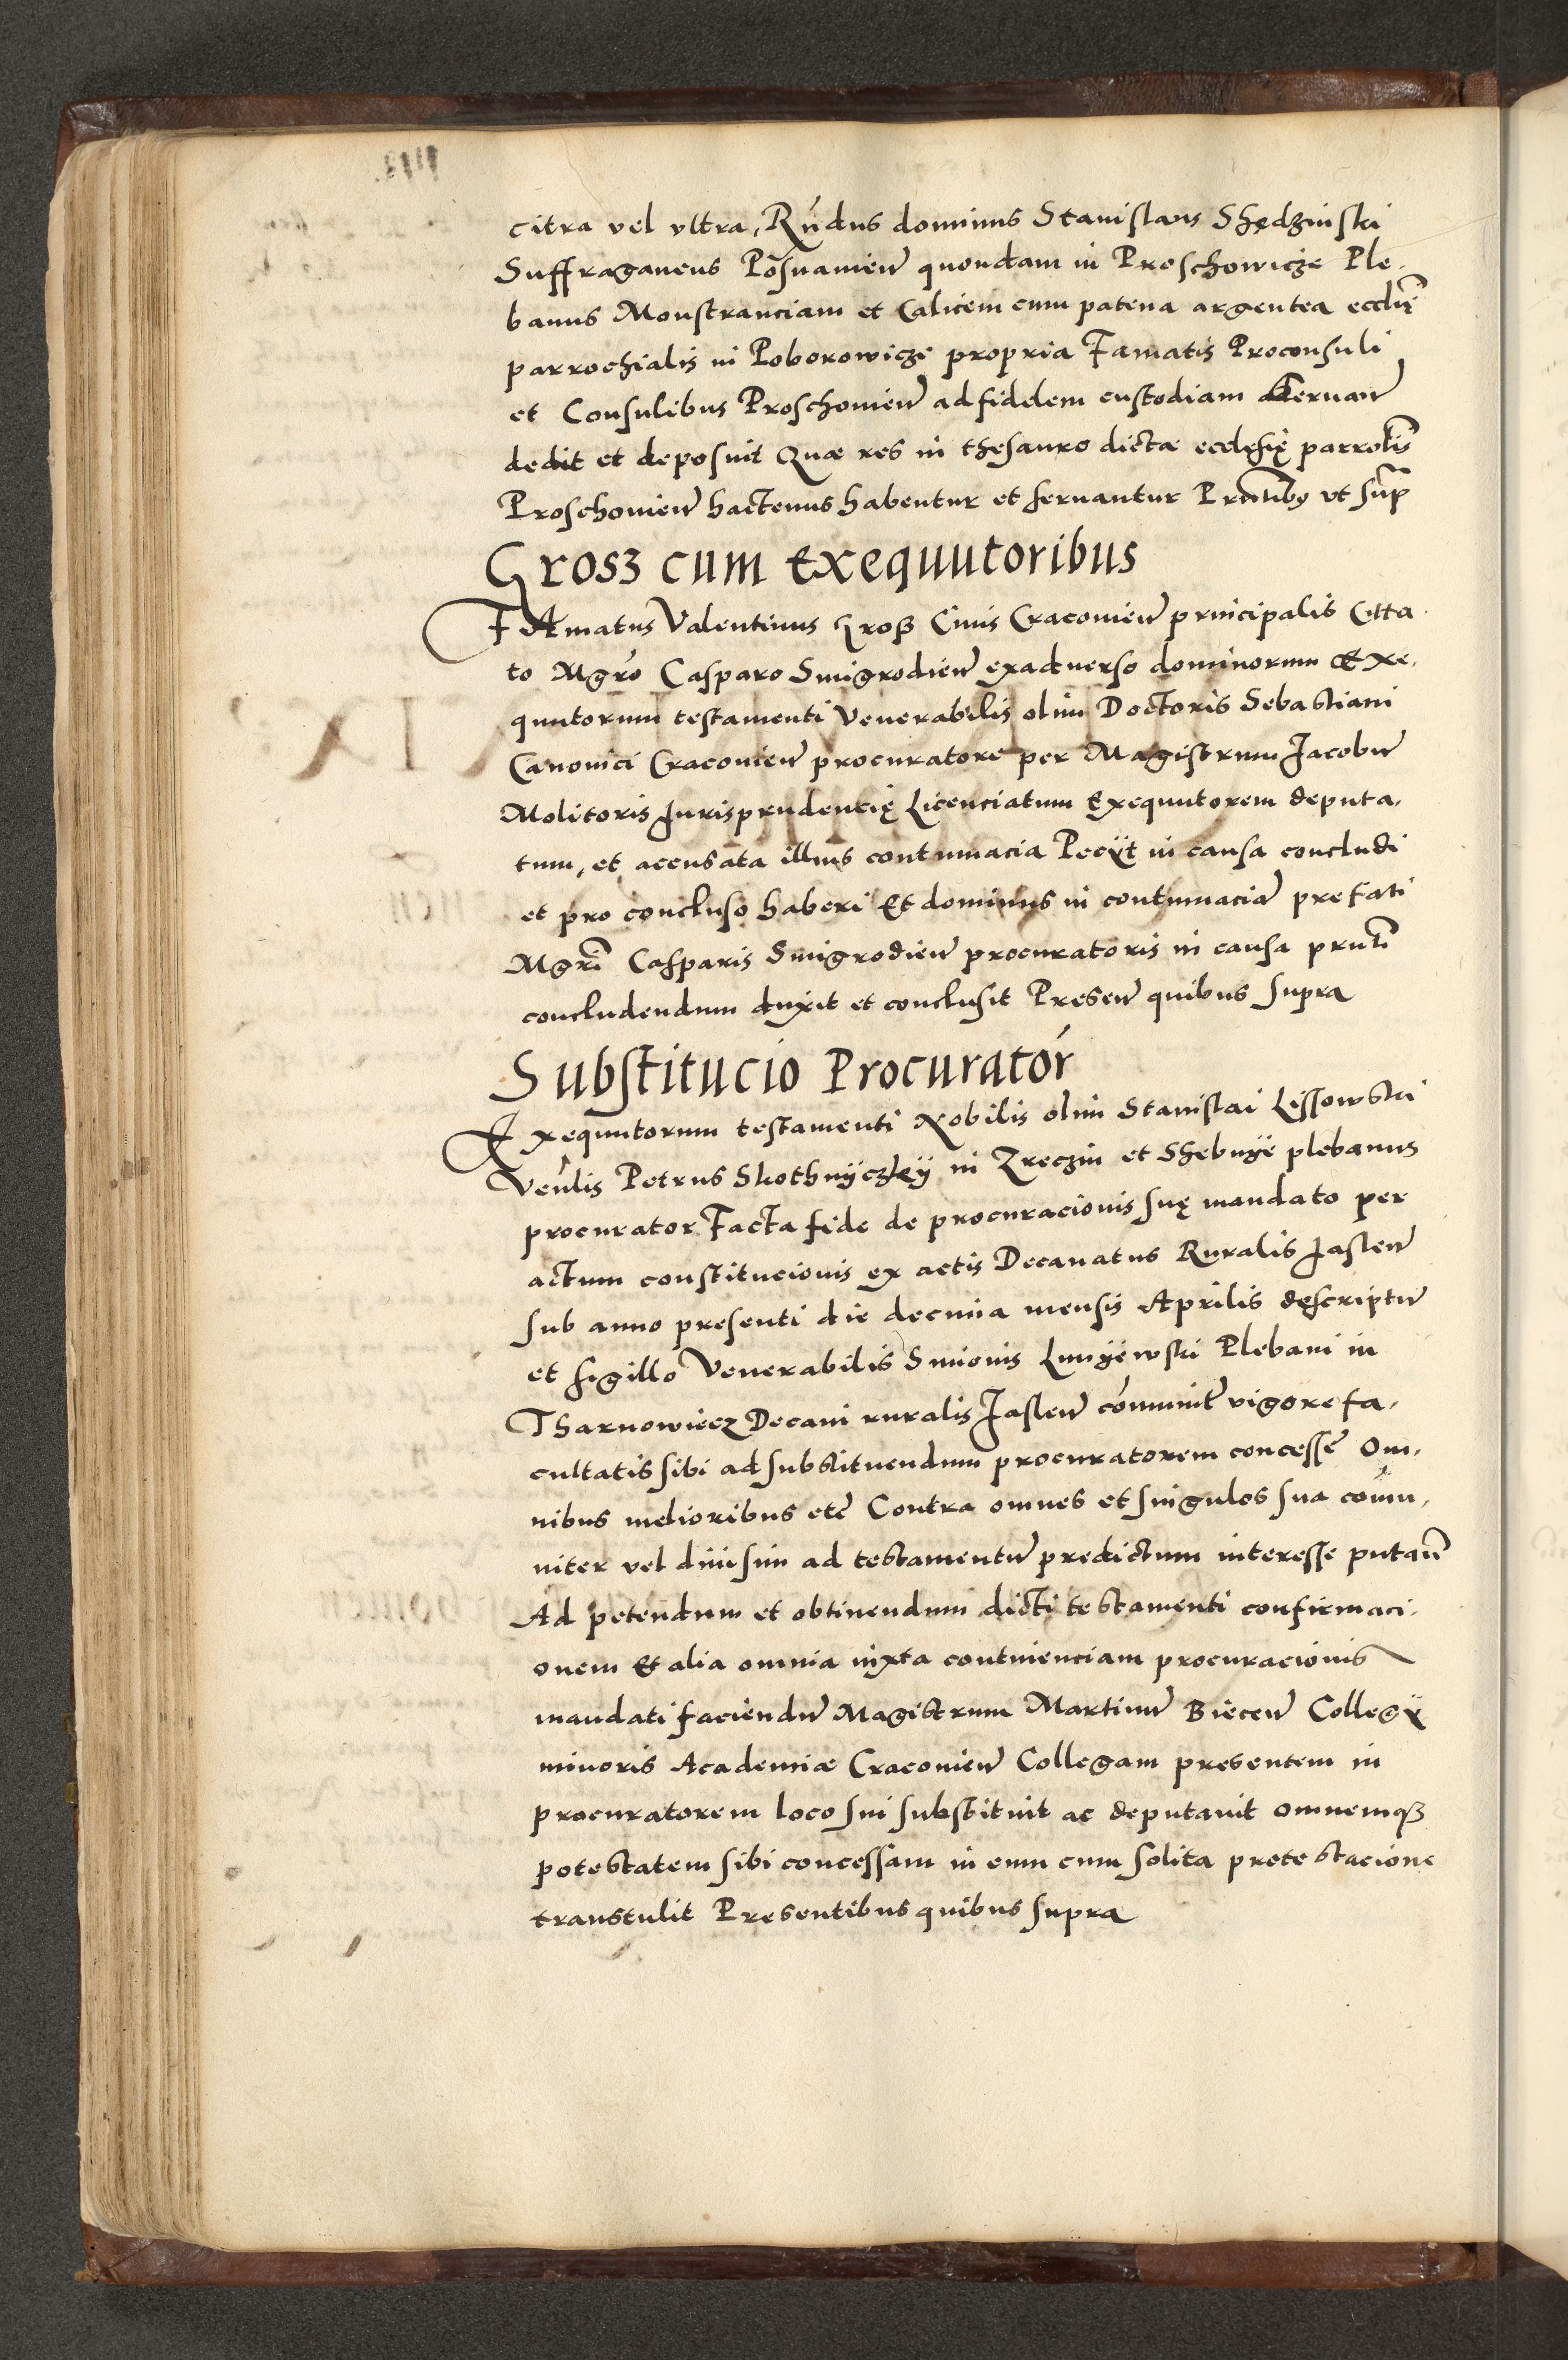 citra vel vltra, Rńdus dominus Stanislaus Shędzinski
Suffraganeus Posnanien̄ quondam in Proschowicze Ple-
banus Monstranciam et Calicem cum patena argentea ecclię̄
parrochialis in Poborowiczi propria Famatis Proconsuli
et Consulibus Proschouien̄ ad fidelem custodiam
dedit et deposuit Quæ res in thesauro dictæ ecclesię parrolis̄
Proschouien̄ hactenus habentur et seruantur Prńtibus vt sup̄
Grosz cum Exequutoribus
FAmatus Valentinus Grosz Ciuis Cracouien̄ principalis Citta-
to Mgrō Casparo Smigrodien̄ ex aduerso dominorum Exe-
quutorum testamenti Venerabilis olim Doctoris Sebastiani
Canonici Cracouien̄ procuratore per Magistrum Jacobum̄
Molitoris Jurisprudencię Licenciatum Exequutorem deputa-
tum, et accusata illius contumacia Pecijt in causa concludi
et pro concluso haberi Et dominus in contumaciam̄ prefati
Mgrī Casparis Smigrodien̄ procuratoris in causa prńti
concludendum duxit et conclusit Presen̄ quibus supra
Substitucio Procurator
Exequutorum testamenti Nobilis olim Stanislai Lissowski
Veńlis Petrus Skothnijczkij in Zreczin et Shebnye plebanus
procurator Facta fide de procuracionis suę mandato per
actum constitucionis ex actis Decanatus Ruralis Jaslen̄
sub anno presenti die decima mensis Aprilis descriptum̄
et sigillo Venerabilis Simonis Lunyewski Plebani in
Tharnowiecz Decani ruralis Jaslen̄ cōmunit̄ vigore fa-
cultatis sibi ad substituendum procuratorem concesse Om-
nibus melioribus etc̄ Contra omnes et singulos sua cōmu-
niter vel diuisim ad testamentum̄ predictum interesse putan̄
Ad petendum et obtinendum dicti testamenti confirmaci-
onem Et alia omnia iuxta continenciam procuracionis
mandati faciendum̄ Magistrum Martinum̄ Biecen̄ Collegij
minoris Academiæ Cracouien̄ Collegam presentem in
procuratorem loco sui substituit ac deputauit omnemqȝ
potestatem sibi concessam in eum cum solita protestacione
transtulit Presentibus quibus supra